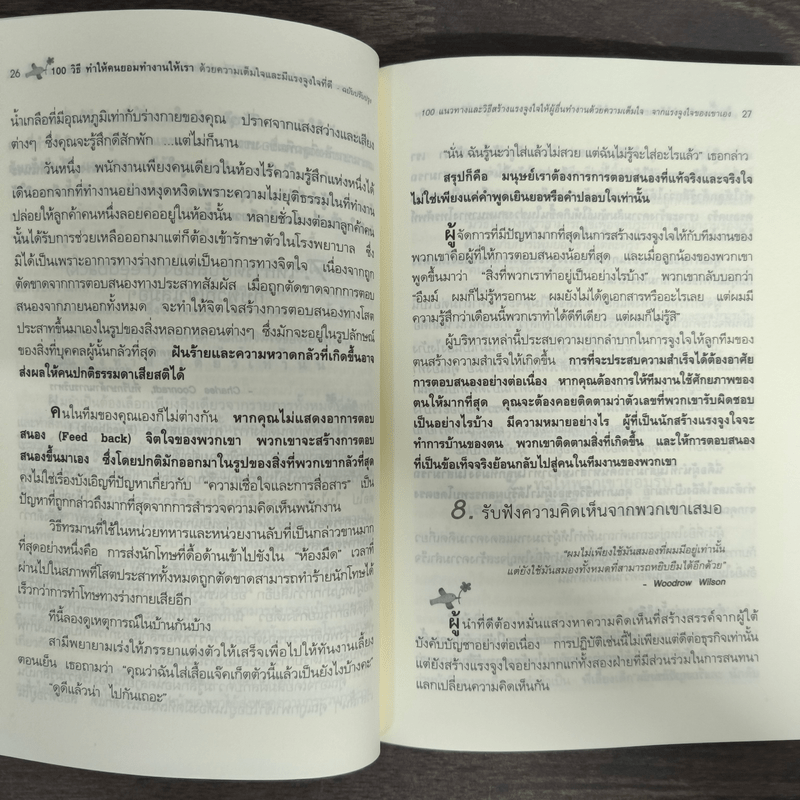 26 100 วิธี ทำให้คนยอมทำงานให้เรา ด้วยความเต็มใจและมีแรงจูงใจที่ดี - ฉบับปรับปรุง
น้ำเกลือที่มีอุณหภูมิเท่ากับร่างกายของคุณ ปราศจากแสงสว่างและเสียง
ต่างๆ ซึ่งคุณจะรู้สึกดีสักพัก ...แต่ไม่ก็นาน
วันหนึ่ง พนักงานเพียงคนเดียวในห้องไร้ความรู้สึกแห่งหนึ่งได้
เดินออกจากที่ทำงานอย่างหงุดหงิดเพราะความไม่ยุติธรรมในที่ทำงาน
ปล่อยให้ลูกค้าคนหนึ่งลอยคออยู่ในห้องนั้น หลายชั่วโมงต่อมาลูกค้าคน
นั้นได้รับการช่วยเหลือออกมาแต่ก็ต้องเข้ารักษาตัวในโรงพยาบาล ซึ่ง
มิได้เป็นเพราะอาการทางร่างกายแต่เป็นอาการทางจิตใจ เนื่องจากถูก
ตัดขาดจากการตอบสนองทางประสาทสัมผัส เมื่อถูกตัดขาดจากการตอบ
สนองจากภายนอกทั้งหมด จะทำให้จิตใจสร้างการตอบสนองทางโสต
ประสาทขึ้นมาเองในรูปของสิ่งหลอกหลอนต่างๆ ซึ่งมักจะอยู่ในรูปลักษณ์
ของสิ่งที่บุคคลผู้นั้นกลัวที่สุด ฝันร้ายและความหวาดกลัวที่เกิดขึ้นอาจ
ส่งผลให้คนปกติธรรมดาเสียสติได้
คนในทีมของคุณเองก็ไม่ต่างกัน หากคุณไม่แสดงอาการตอบ
สนอง (Feed back) จิตใจของพวกเขา พวกเขาจะสร้างการตอบ
สนองขึ้นมาเอง ซึ่งโดยปกติมักออกมาในรูปของสิ่งที่พวกเขากลัวที่สุด
คงไม่ใช่เรื่องบังเอิญที่ปัญหาเกี่ยวกับ "ความเชื่อใจและการสื่อสาร" เป็น
ปัญหาที่ถูกกล่าวถึงมากที่สุดจากการสำรวจความคิดเห็นพนักงาน
วิธีทรมานที่ใช้ในหน่วยทหารและหน่วยงานลับที่เป็นกล่าวขานมาก
ที่สุดอย่างหนึ่งคือ การส่งนักโทษที่ดื้อด้านเข้าไปขังใน "ห้องมืด" เวลาที่
ผ่านไปในสภาพที่โสตประสาททั้งหมดถูกตัดขาดสามารถทำร้ายนักโทษได้
เร็วกว่าการทำโทษทางร่างกายเสียอีก
ทีนี้ลองดูเหตุการณ์ในบ้านกันบ้าง
สามีพยายามเร่งให้ภรรยาแต่งตัวให้เสร็จเพื่อไปให้ทันงานเลี้ยง
ตอนเย็น เธอถามว่า "คุณว่าฉันใส่เสื้อแจ๊คเก็ตตัวนี้แล้วเป็นยังไงบ้างคะ"
"ดูดีแล้วน่า ไปกันเถอะ"
100 แนวทางและวิธีสร้างแรงจูงใจให้ผู้อื่นทำงานด้วยความเต็มใจ จากแรงจูงใจของเขาเอง 27
"นั่น ฉันรู้นะว่าใส่แล้วไม่สวย แต่ฉันไม่รู้จะใส่อะไรแล้ว" เธอกล่าว
สรุปก็คือ มนุษย์เราต้องการการตอบสนองที่แท้จริงและจริงใจ
ไม่ใช่เพียงแค่คำพูดเยินยอหรือคำปลอบใจเท่านั้น
ผู้จัดการที่มีปัญหามากที่สุดในการสร้างแรงจูงใจให้กับทีมงานของ
พวกเขาคือผู้ที่ให้การตอบสนองน้อยที่สุด และเมื่อลูกน้องของพวกเขา
พูดขึ้นมาว่า "สิ่งที่พวกเราทำอยู่เป็นอย่างไรบ้าง" พวกเขากลับบอกว่า
"อืมม์ ผมก็ไม่รู้หรอกนะ ผมยังไม่ได้ดูเอกสารหรืออะไรเลย แต่ผมมี
ความรู้สึกว่าเดือนนี้พวกเราทำได้ดีทีเดียว แต่ผมก็ไม่รู้สิ"
ผู้บริหารเหล่านี้ประสบความยากลำบากในการจูงใจให้ลูกทีมของ
ตนสร้างความสำเร็จให้เกิดขึ้น การที่จะประสบความสำเร็จได้ต้องอาศัย
การตอบสนองอย่างต่อเนื่อง หากคุณต้องการให้ทีมงานใช้ศักยภาพของ
ตนให้มากที่สุด คุณจะต้องคอยติดตามว่าตัวเลขที่พวกเขารับผิดชอบ
เป็นอย่างไรบ้าง มีความหมายอย่างไร ผู้ที่เป็นนักสร้างแรงจูงใจจะ
ทำการบ้านของตน พวกเขาติดตามสิ่งที่เกิดขึ้น และให้การตอบสนอง
ที่เป็นข้อเท็จจริงย้อนกลับไปสู่คนในทีมงานของพวกเขา
8. รับฟังความคิดเห็นจากพวกเขาเสมอ
"ผมไม่เพียงใช้มันสมองที่ผมมีอยู่เท่านั้น
แต่ยังใช้มันสมองทั้งหมดที่สามารถหยิบยืมได้อีกด้วย"
- Woodrow Wilson
ผู้นำที่ดีต้องหมั่นแสวงหาความคิดเห็นที่สร้างสรรค์จากผู้ใต้
บังคับบัญชาอย่างต่อเนื่อง การปฏิบัติเช่นนี้ไม่เพียงแต่ดีต่อธุรกิจเท่านั้น
แต่ยังสร้างแรงจูงใจอย่างมากแก่ทั้งสองฝ่ายที่มีส่วนร่วมในการสนทนา
แลกเปลี่ยนความคิดเห็นกัน